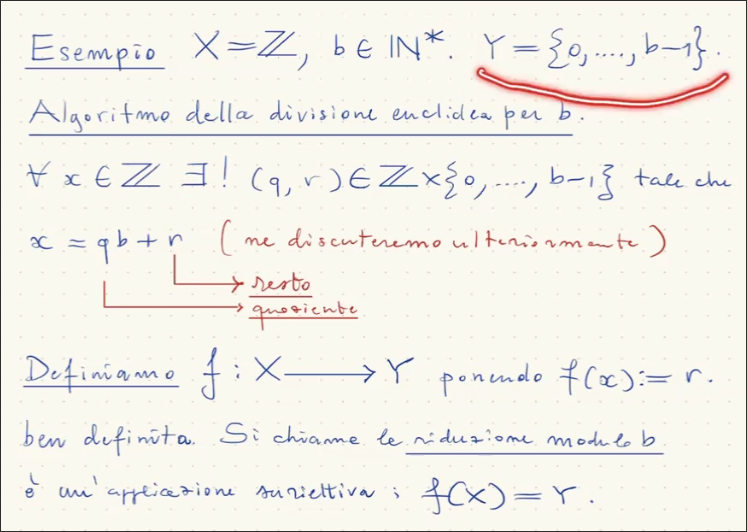 Esempio X=ℤ, b∈ℕ*. Y={0,....,b-1}.
Algoritmo della divisione euclidea per b.
∀ x∈ℤ ∃! (q,r)∈ℤ×{0,....,b-1} tale che
x=qb+r (ne discuteremo ulteriormente)
resto
quoziente
Definiamo f: X⟶Y ponendo f(x):=r.
ben definita. Si chiama la riduzione modulo b
è un'applicazione suriettiva; f(X)=Y.